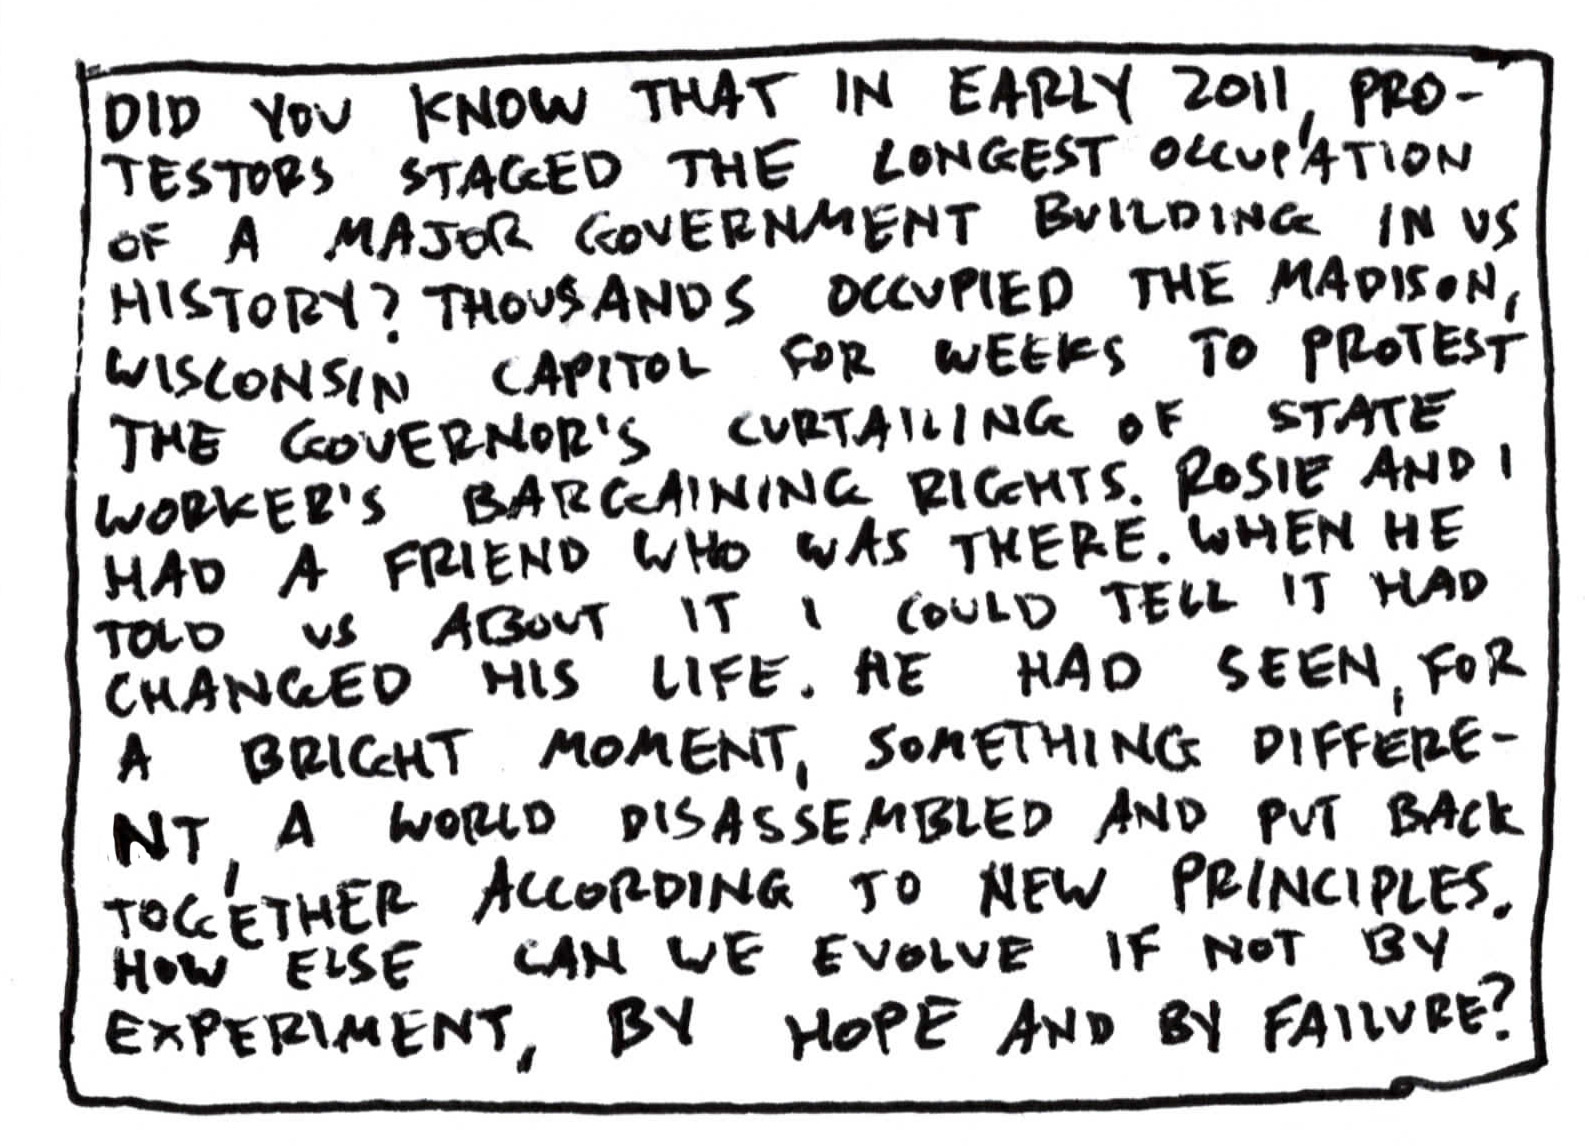 DID YOU KNOW THAT IN EARLY 2011, PRO-
TESTORS STAGED THE LONGEST OCCUPATION
OF A MAJOR GOVERNMENT BUILDING IN US
HISTORY? THOUSANDS OCCUPIED THE MADISON,
WISCONSIN CAPITOL FOR WEEKS TO PROTEST
THE GOVERNOR'S CURTAILING OF STATE
WORKER'S BARGAINING RIGHTS. ROSIE AND I
HAD A FRIEND WHO WAS THERE. WHEN HE
TOLD US ABOUT IT I COULD TELL IT HAD
CHANGED HIS LIFE. HE HAD SEEN, FOR
A BRIGHT MOMENT, SOMETHING DIFFERE-
NT, A WORLD DISASSEMBLED AND PUT BACK
TOGETHER ACCORDING TO NEW PRINCIPLES.
HOW ELSE CAN WE EVOLVE IF NOT BY
EXPERIMENT, BY HOPE AND BY FAILURE?